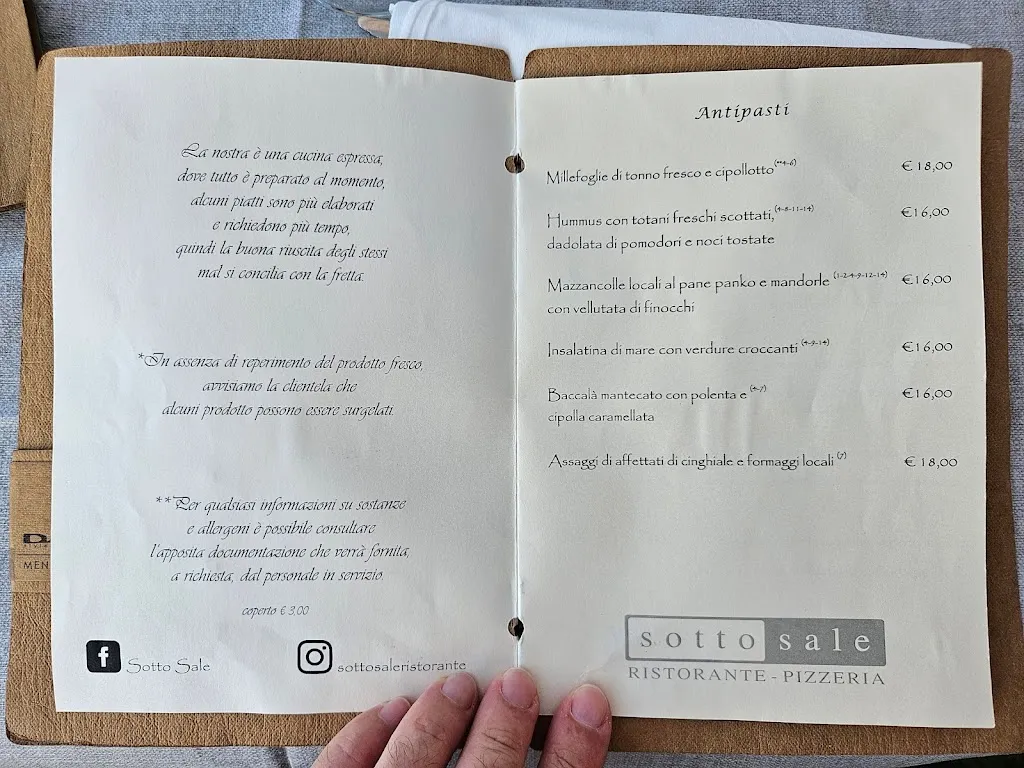 La nostra è una cucina espressa,
dove tutto è preparato al momento,
alcuni piatti sono più elaborati
e richiedono più tempo,
quindi la buona riuscita degli stessi
mal si concilia con la fretta.
*In assenza di reperimento del prodotto fresco,
avvisiamo la clientela che
alcuni prodotto possono essere surgelati.
**Per qualsiasi informazioni su sostanze
e allergeni è possibile consultare
l'apposita documentazione che verrà fornita,
a richiesta, dal personale in servizio.
coperto € 3,00
Sotto Sale
sottosaleristorante
MEN
Antipasti
Millefoglie di tonno fresco e cipollotto (**4-6) € 18,00
Hummus con totani freschi scottati, (4-8-11-14) €16,00
dadolata di pomodori e noci tostate
Mazzancolle locali al pane panko e mandorle (1-2-4-9-12-14) €16,00
con vellutata di finocchi
Insalatina di mare con verdure croccanti (4-9-14) €16,00
Baccalà mantecato con polenta e (4-7) €16,00
cipolla caramellata
Assaggi di affettati di cinghiale e formaggi locali (7) € 18,00
sotto sale
RISTORANTE - PIZZERIA